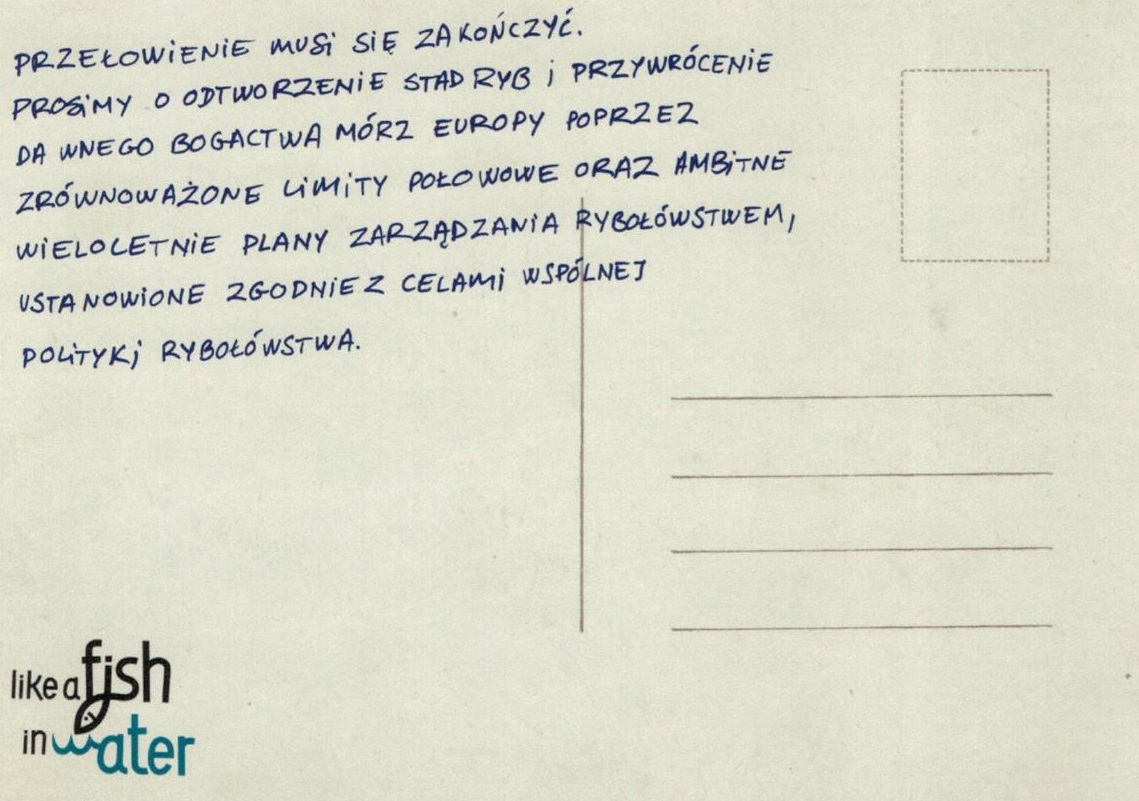 PRZEŁOWIENIE MUSI SIĘ ZAKOŃCZYĆ.
PROSIMY O ODTWORZENIE STAD RYB I PRZYWRÓCENIE
DAWNEGO BOGACTWA MÓRZ EUROPY POPRZEZ
ZRÓWNOWAŻONE LIMITY POŁOWOWE ORAZ AMBITNE
WIELOLETNIE PLANY ZARZĄDZANIA RYBOŁÓWSTWEM,
USTANOWIONE ZGODNIE Z CELAMI WSPÓLNEJ
POLITYKI RYBOŁÓWSTWA.
like a fish
in water